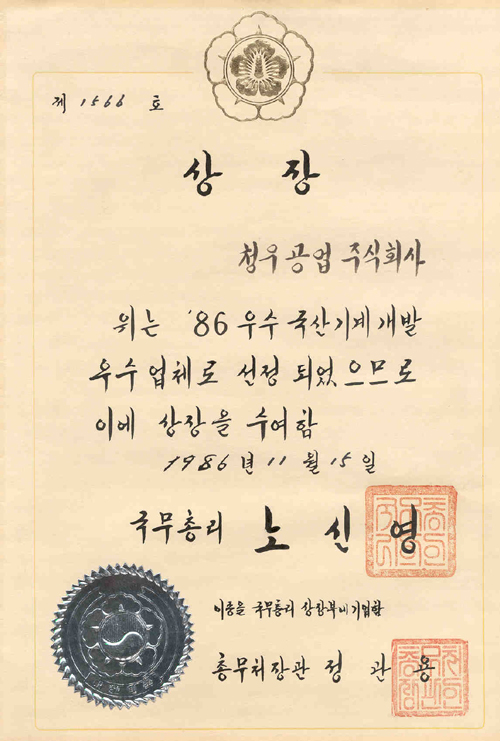 제 1566 호
상 장
청우공업 주식회사
위는 '86 우수 국산기계개발
우수업체로 선정 되었으므로
이에 상장을 수여함
1986년 11월 15일
국무총리 노 신 영
이증을 국무총리 상장부에 기입함
총무처장관 정 관 용